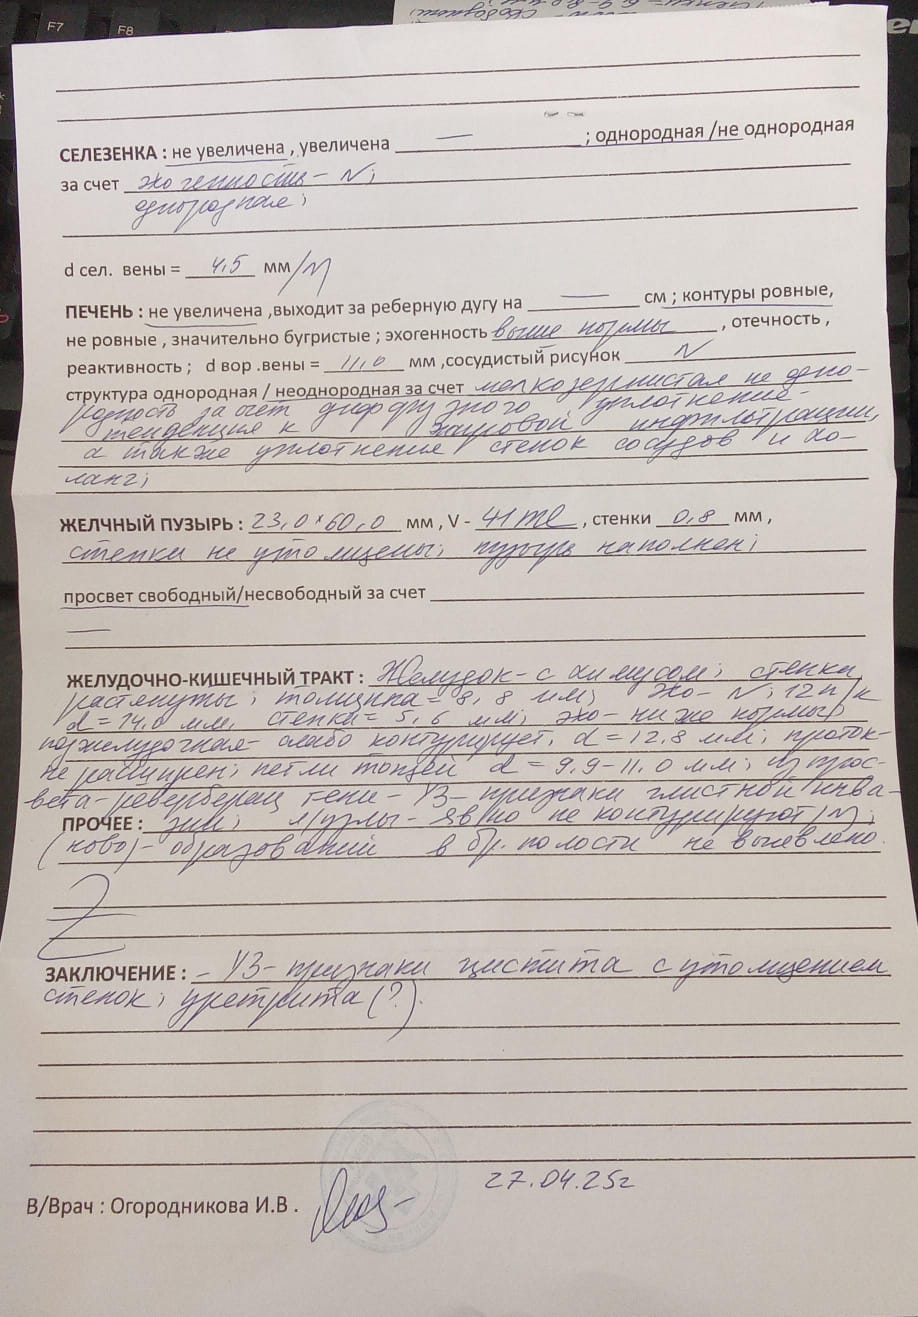 F7
F8
СЕЛЕЗЕНКА : не увеличена , увеличена — ; однородная /не однородная
за счет эхогенность - N;
однородная;
d сел. вены = 4,5 мм /N
ПЕЧЕНЬ : не увеличена ,выходит за реберную дугу на — см ; контуры ровные,
не ровные , значительно бугристые ; эхогенность выше нормы , отечность ,
реактивность ; d вор .вены = 11,0 мм ,сосудистый рисунок N
структура однородная / неоднородная за счет мелкозернистая не одно-
родность за счет диффузного уплотнения-
тенденция к жировой инфильтрации,
а также уплотнения стенок сосудов и хо-
ланг;
ЖЕЛЧНЫЙ ПУЗЫРЬ : 23,0 x 60,0 мм , V - 41 ml , стенки 0,8 мм ,
стенки не утолщены; пузырь наполнен;
просвет свободный/несвободный за счет
—
ЖЕЛУДОЧНО-КИШЕЧНЫЙ ТРАКТ : Желудок - с химусом; стенки
растянуты; толщина = 8,8 мм; эхо - N; 12 п/к
d = 14,0 мм, стенка = 5,6 мм; эхо - ниже нормы;
поджелудочная - слабо контурирует, d = 12,8 мм; проток -
не расширен; петли тощей d = 9,9 - 11,0 мм; из прос-
вета - ревербирац тени - УЗ - признаки глистной инва-
ПРОЧЕЕ : зии; л/узлы - явно не контурируют /N;
(ново) - образований в бр. полости не выявлено.
ЗАКЛЮЧЕНИЕ : - УЗ - признаки цистита с утолщением
стенок; уретрита (?).
27.04.25г
В/Врач : Огородникова И.В .